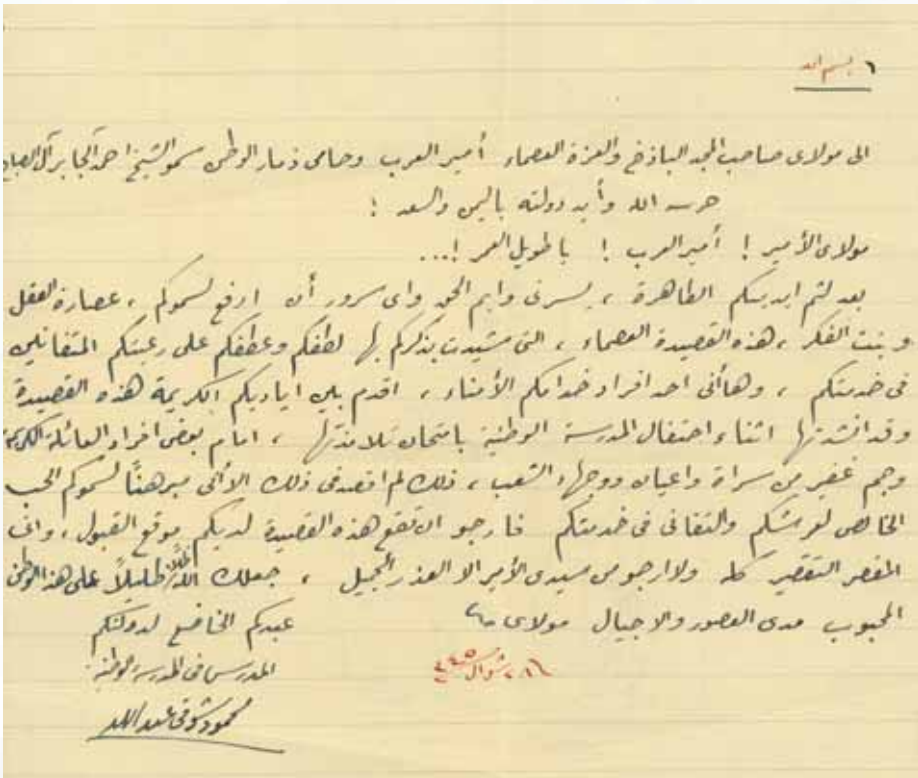 بسم الله
الى مولاى صاحب المجد الباذخ والعزة القعساء أمير العرب وحامى ذمار الوطن سمو الشيخ احمد الجابر آل الصباح
حرسه الله وأيد دولته باليمن والسعد !
مولاى الأمير ! أمير العرب ! يا طويل العمر !...
بعد لثم ايديكم الطاهرة ، يسرنى وايم الحق واى سرور أن ارفع لسموكم ، عصارة العقل
وبنت الفكر ، هذه القصيدة العصماء ، التى شيدت بذكركم بها لطفكم وعطفكم على رعيتكم المتفانين
فى خدمتكم ، وهاأنى احد افراد خدامكم الأمناء ، اقدم بين اياديكم الكريمة هذه القصيدة
وقد انشدتها اثناء احتفال المدرسة الوطنية بامتحان تلامذتها ، امام بعض افراد العائلة الكريمة
وجم غفير من سراة واعيان ووجهاء الشعب ، فلم اقصد فى ذلك الا أنى مبرهناً لسموكم الحب
الخالص لعرشكم والتفانى فى خدمتكم فارجو ان تقع هذه القصيدة لديكم موقع القبول ، وانى
المقصر التقصير كله ولا ارجو من سيدى الأمير الا العذر الجميل ، جعلك الله ظلاً ظليلاً على هذا الوطن
المحبوب مدى العصور والاجيال مولاى
عبدكم الخاضع لدولتكم
المدرس فى المدرسة الوطنية
شوال
محمود شوقى عبدالله